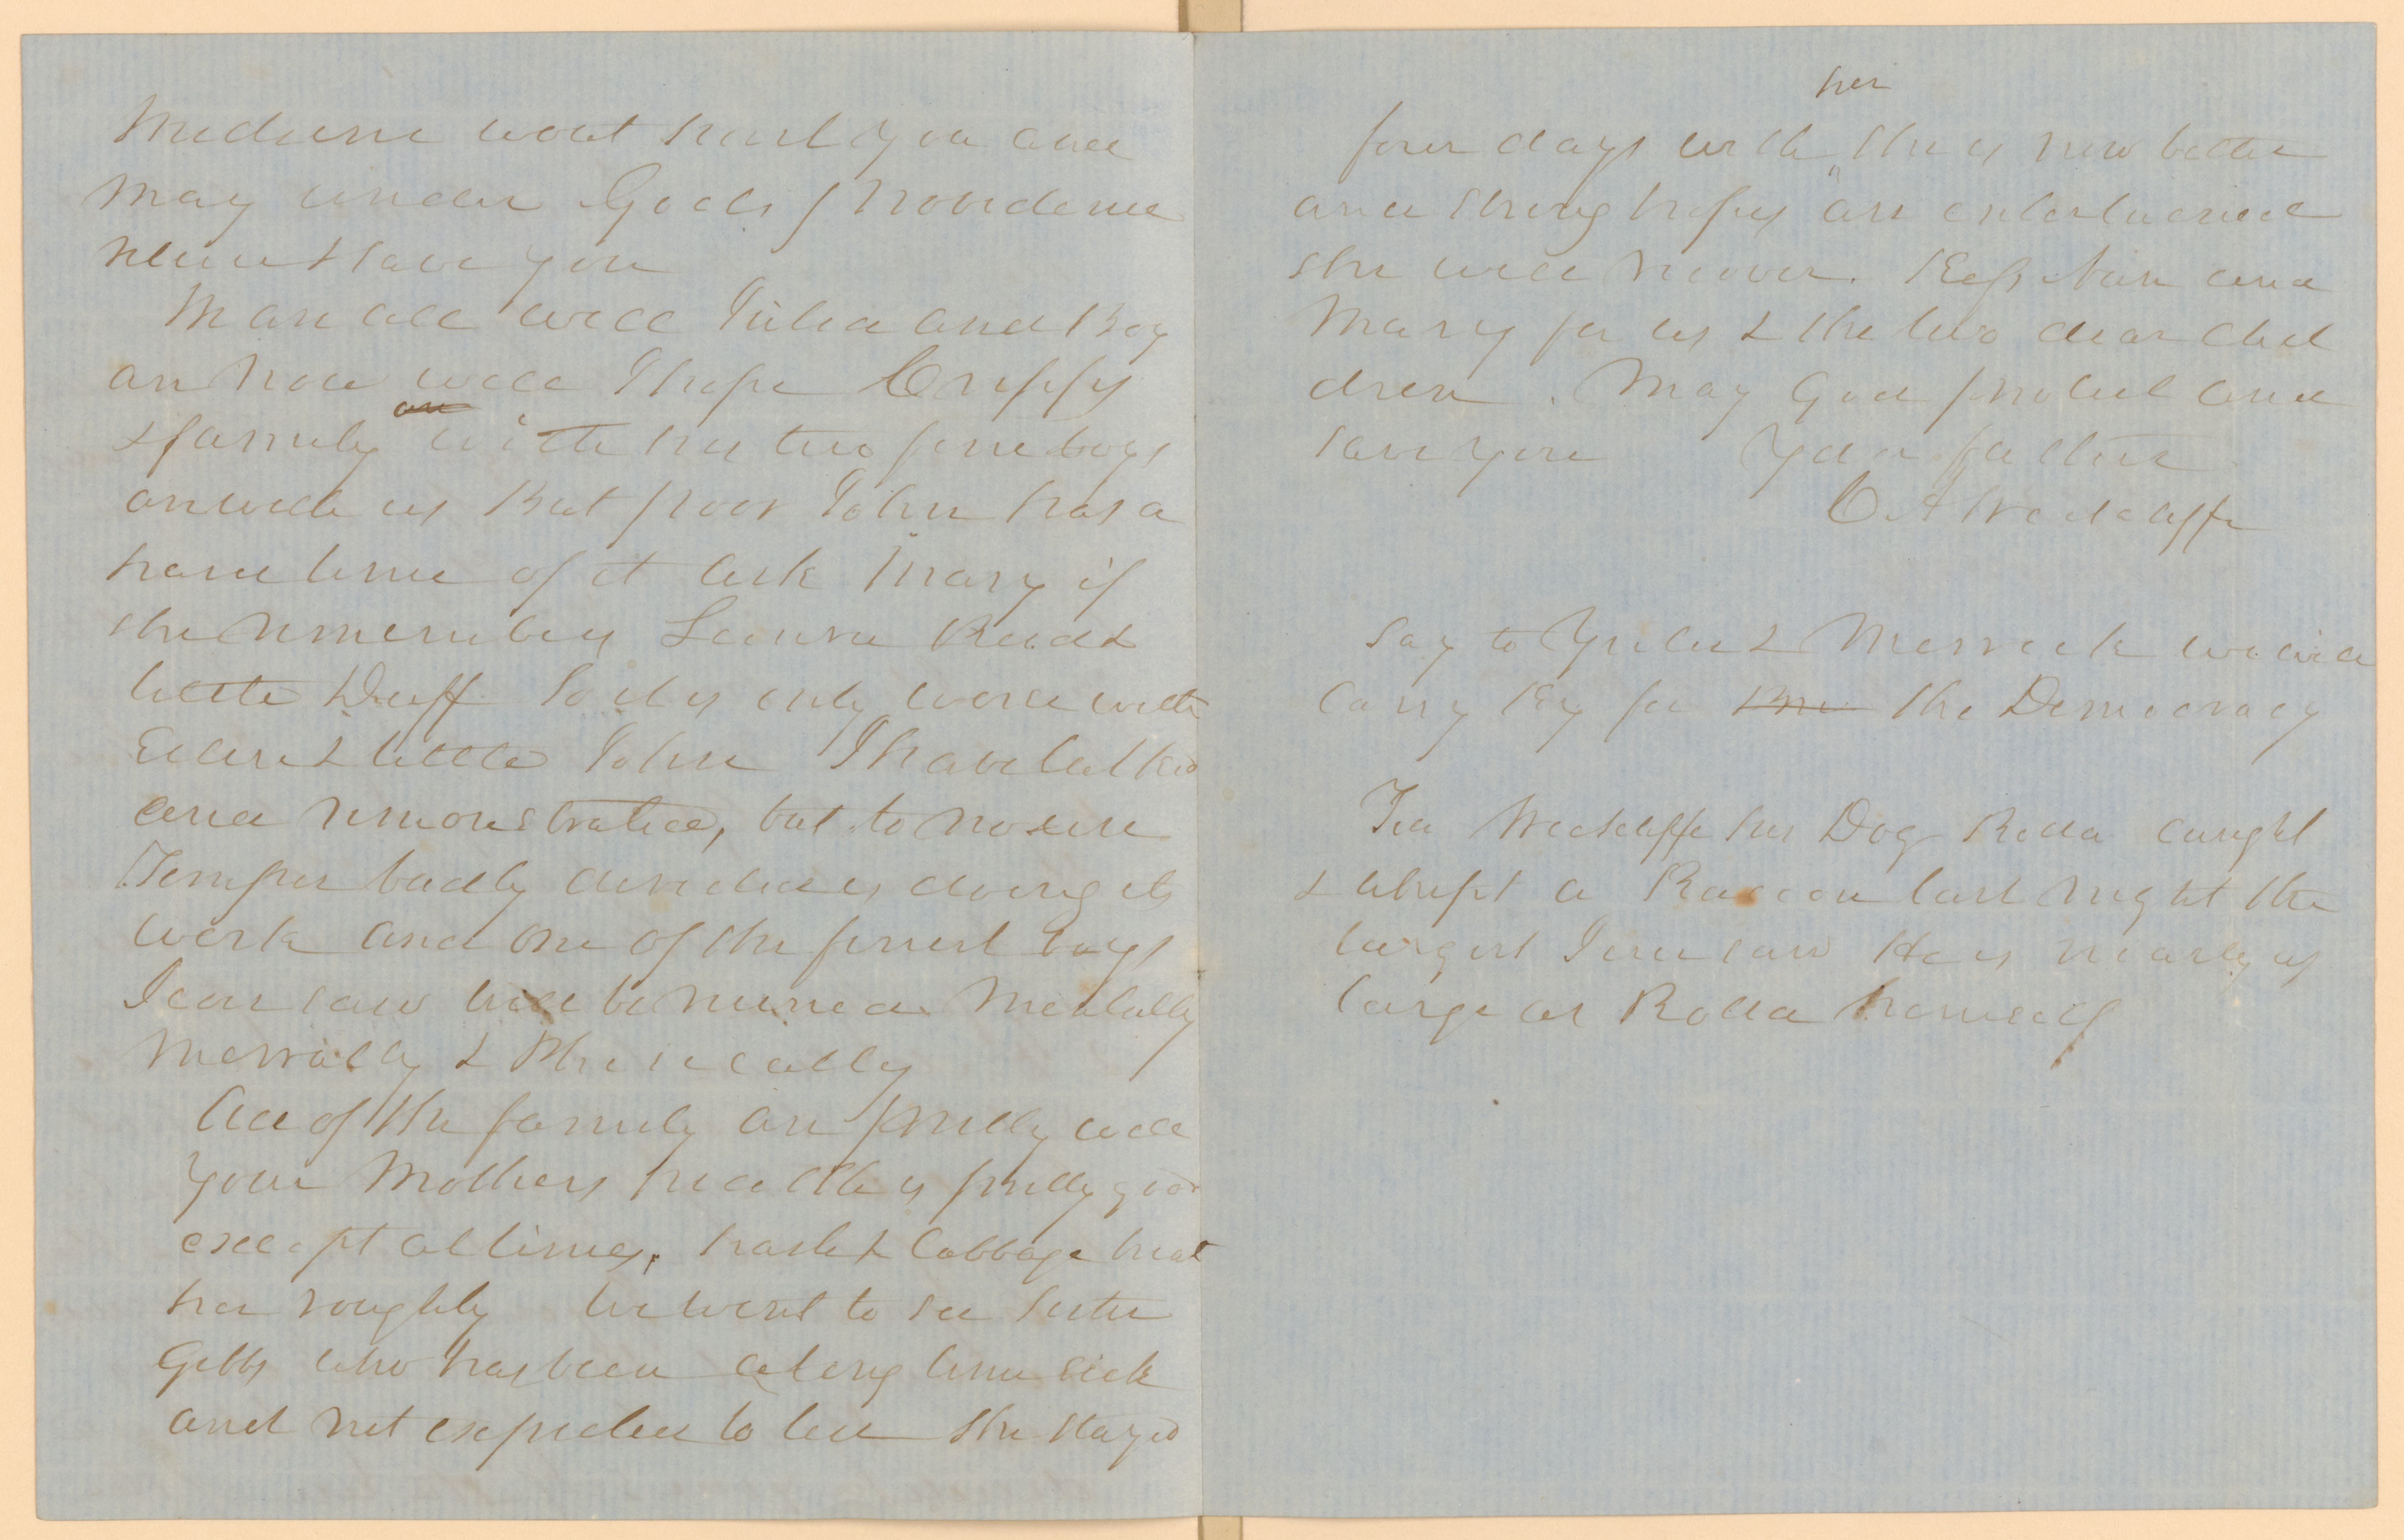 Medicine wont hurt you and
may under Gods providence
relieve & save you
We are all well Julia and Boy
are now well I hope Crippy
& family with her two fine boys
are with us But poor John has a
hard time of it ask Mary if
she remembers Laura Read &
little Duff So it is only worse with
& little John I have talked
and remonstrated, but to no use
Temper badly directed is doing its
work and one of the finest boys
I ever saw will be ruined Mentally
Morrally & Phisically
All of the family are pretty well
your Mothers health is pretty good
except at times, & Cabbage treat
her roughly We went to see Sister
Gibbs who has been a long time sick
and not expected to live She stayed
four days with her she is now better
and strong hopes are entertained
she will recover. Kiss Nan and
Mary for us & the two dear chil
dren. May God protect and
save you Your father
C A Wickliffe
Say to Yulee & Merrick we will
carry Ky for the Democracy
Wickliffe his Dog Rolla caught
& whipt a Raccon last night the
largest I ever saw He is nearly as
large as Rolla himself